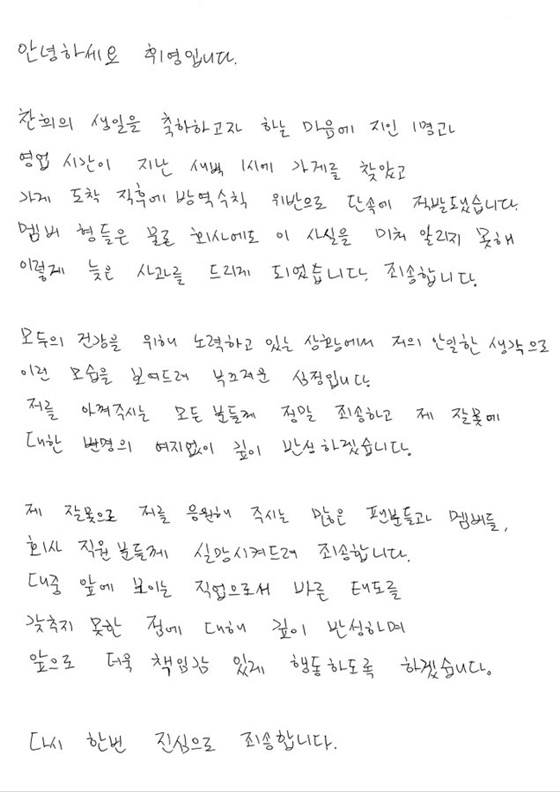 안녕하세요 휘영입니다.
찬희의 생일을 축하하고자 하는 마음에 지인 1명과
영업 시간이 지난 새벽 1시에 가게를 찾았고
가게 도착 직후에 방역수칙 위반으로 단속에 적발됐습니다.
멤버 형들은 물론 회사에도 이 사실을 미처 알리지 못해
이렇게 늦은 사과를 드리게 되었습니다. 죄송합니다.
모두의 건강을 위해 노력하고 있는 상황에서 저의 안일한 생각으로
이런 모습을 보여드려 부끄러운 심정입니다.
저를 아껴주시는 모든 분들께 정말 죄송하고 제 잘못에
대한 변명의 여지없이 깊이 반성하겠습니다.
제 잘못으로 저를 응원해 주시는 많은 팬분들과 멤버들,
회사 직원 분들께 실망시켜드려 죄송합니다.
대중 앞에 보이는 직업으로서 바른 태도를
갖추지 못한 점에 대해 깊이 반성하며
앞으로 더욱 책임감 있게 행동하도록 하겠습니다.
다시 한번 진심으로 죄송합니다.